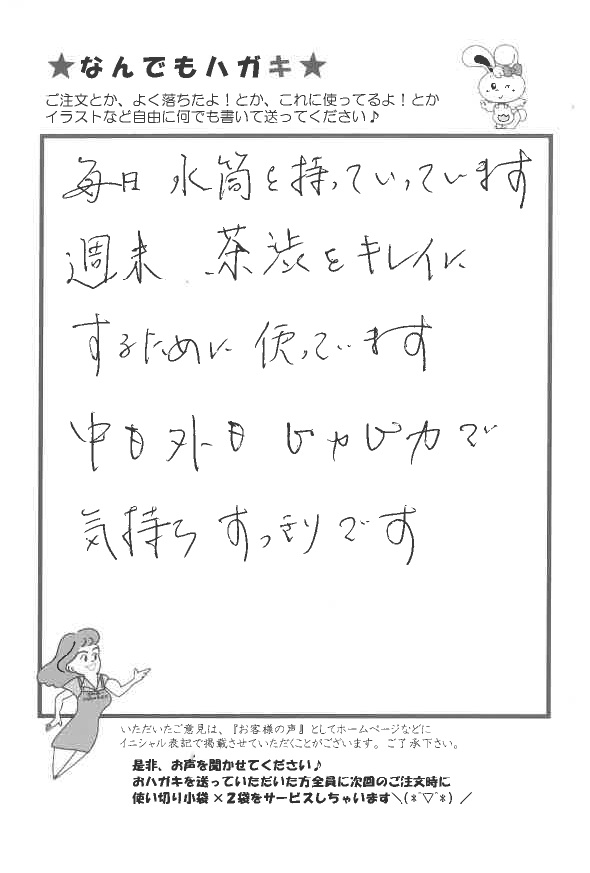 ★なんでもハガキ★
ご注文とか、よく落ちたよ！とか、これに使ってるよ！とか
イラストなど自由に何でも書いて送ってください♪
毎日 水筒を持っていっています
週末 茶渋をキレイに
するために 使っています
中も外も ピカピカで
気持ち すっきりです
いただいたご意見は、『お客様の声』としてホームページなどに
イニシャル表記で掲載させていただくことがございます。ご了承下さい。
是非、お声を聞かせてください♪
おハガキを送っていただいた方全員に次回のご注文時に
使い切り小袋×2袋をサービスしちゃいます＼(*^▽^*)／